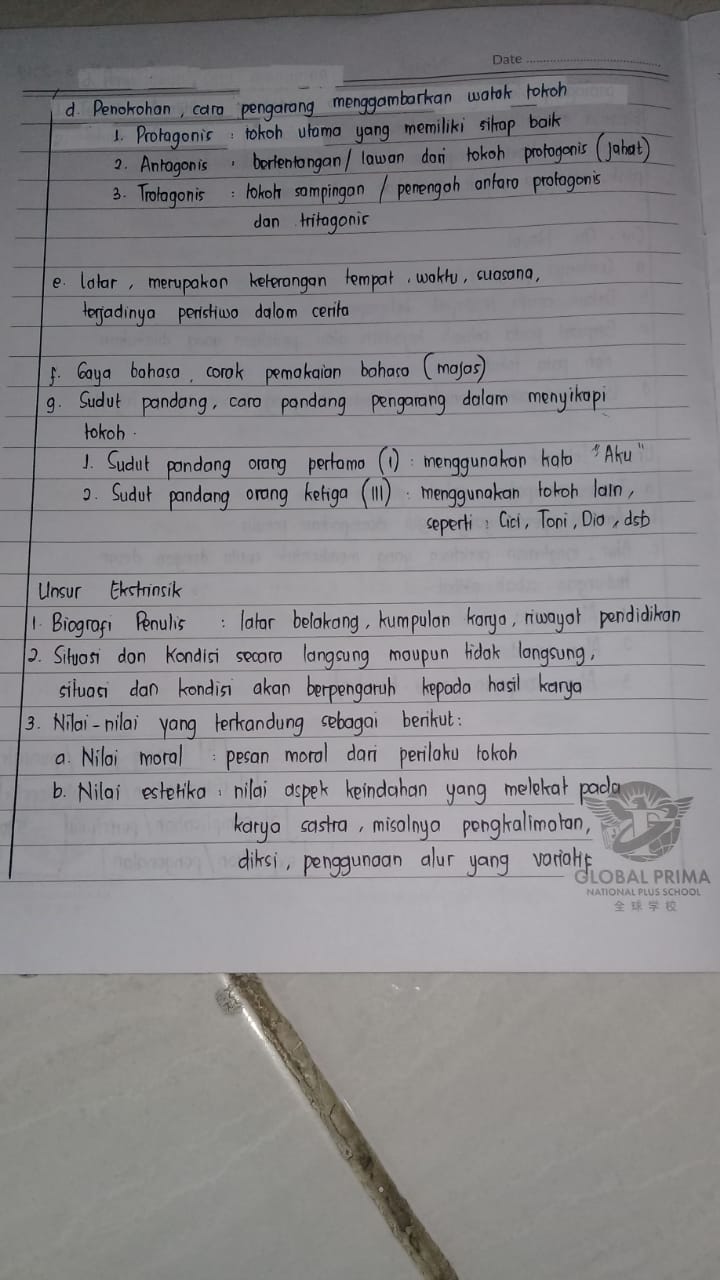 Date
d. Penokohan, cara pengarang menggambarkan watak tokoh
1. Protagonis : tokoh utama yang memiliki sikap baik
2. Antagonis : bertentangan / lawan dari tokoh protagonis (jahat)
3. Trotagonis : tokoh sampingan / penengah antara protagonis
dan tritagonis
e. latar, merupakan keterangan tempat, waktu, suasana,
terjadinya peristiwa dalam cerita
f. Gaya bahasa, corak pemakaian bahasa (majas)
g. Sudut pandang, cara pandang pengarang dalam menyikapi
tokoh.
1. Sudut pandang orang pertama (I) : menggunakan kata "Aku"
2. Sudut pandang orang ketiga (III) : menggunakan tokoh lain,
seperti : Cici, Toni, Dio, dsb
Unsur Ekstrinsik
1. Biografi Penulis : latar belakang, kumpulan karya, riwayat pendidikan
2. Situasi dan Kondisi secara langsung maupun tidak langsung,
situasi dan kondisi akan berpengaruh kepada hasil karya
3. Nilai-nilai yang terkandung sebagai berikut:
a. Nilai moral : pesan moral dari perilaku tokoh
b. Nilai estetika : nilai aspek keindahan yang melekat pada
karya sastra, misalnya pengkalimatan,
diksi, penggunaan alur yang variatif
GLOBAL PRIMA
NATIONAL PLUS SCHOOL
全球学校